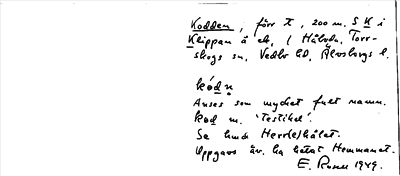 Kodden, förr t, 200 m. S K i
Klippan å ek, 1 Håbola, Torr-
skogs sn, Vedbo hd, Älvsborgs l.
kódn
Anses som mycket fult namn.
kod m. 'testikel'.
Se under Herr(e)hålet.
Uppgavs äv. ha hetat Hemmanet.
E. Rosell 1949.